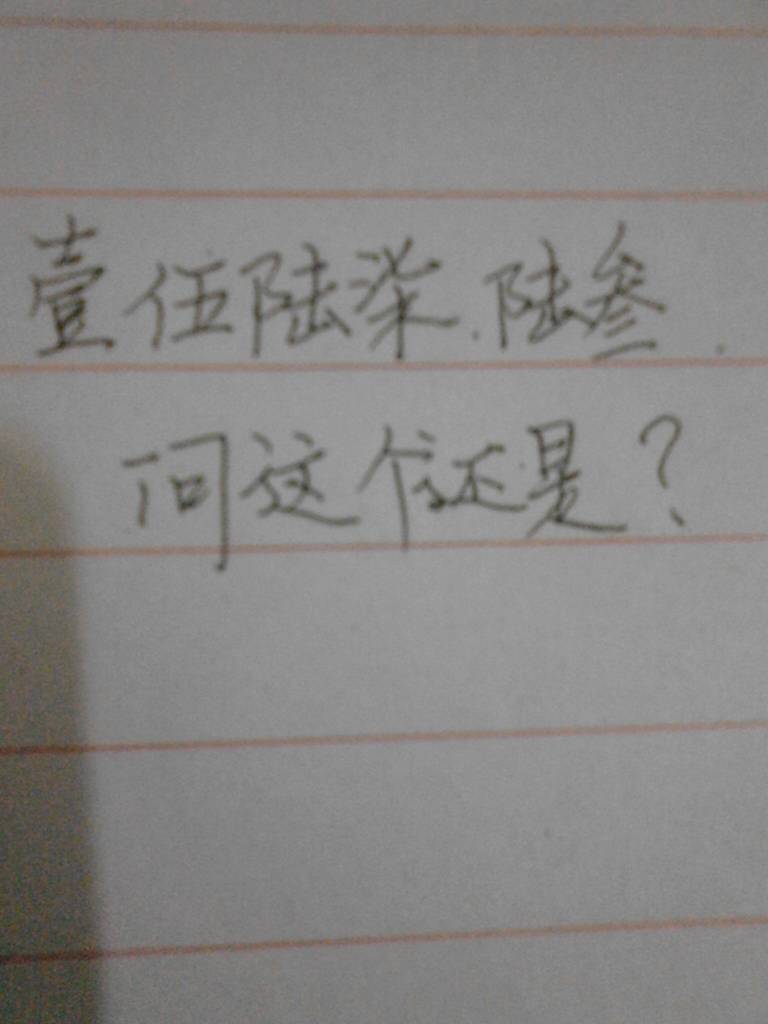 壹伍陆柒.陆叁.
问这个还是?